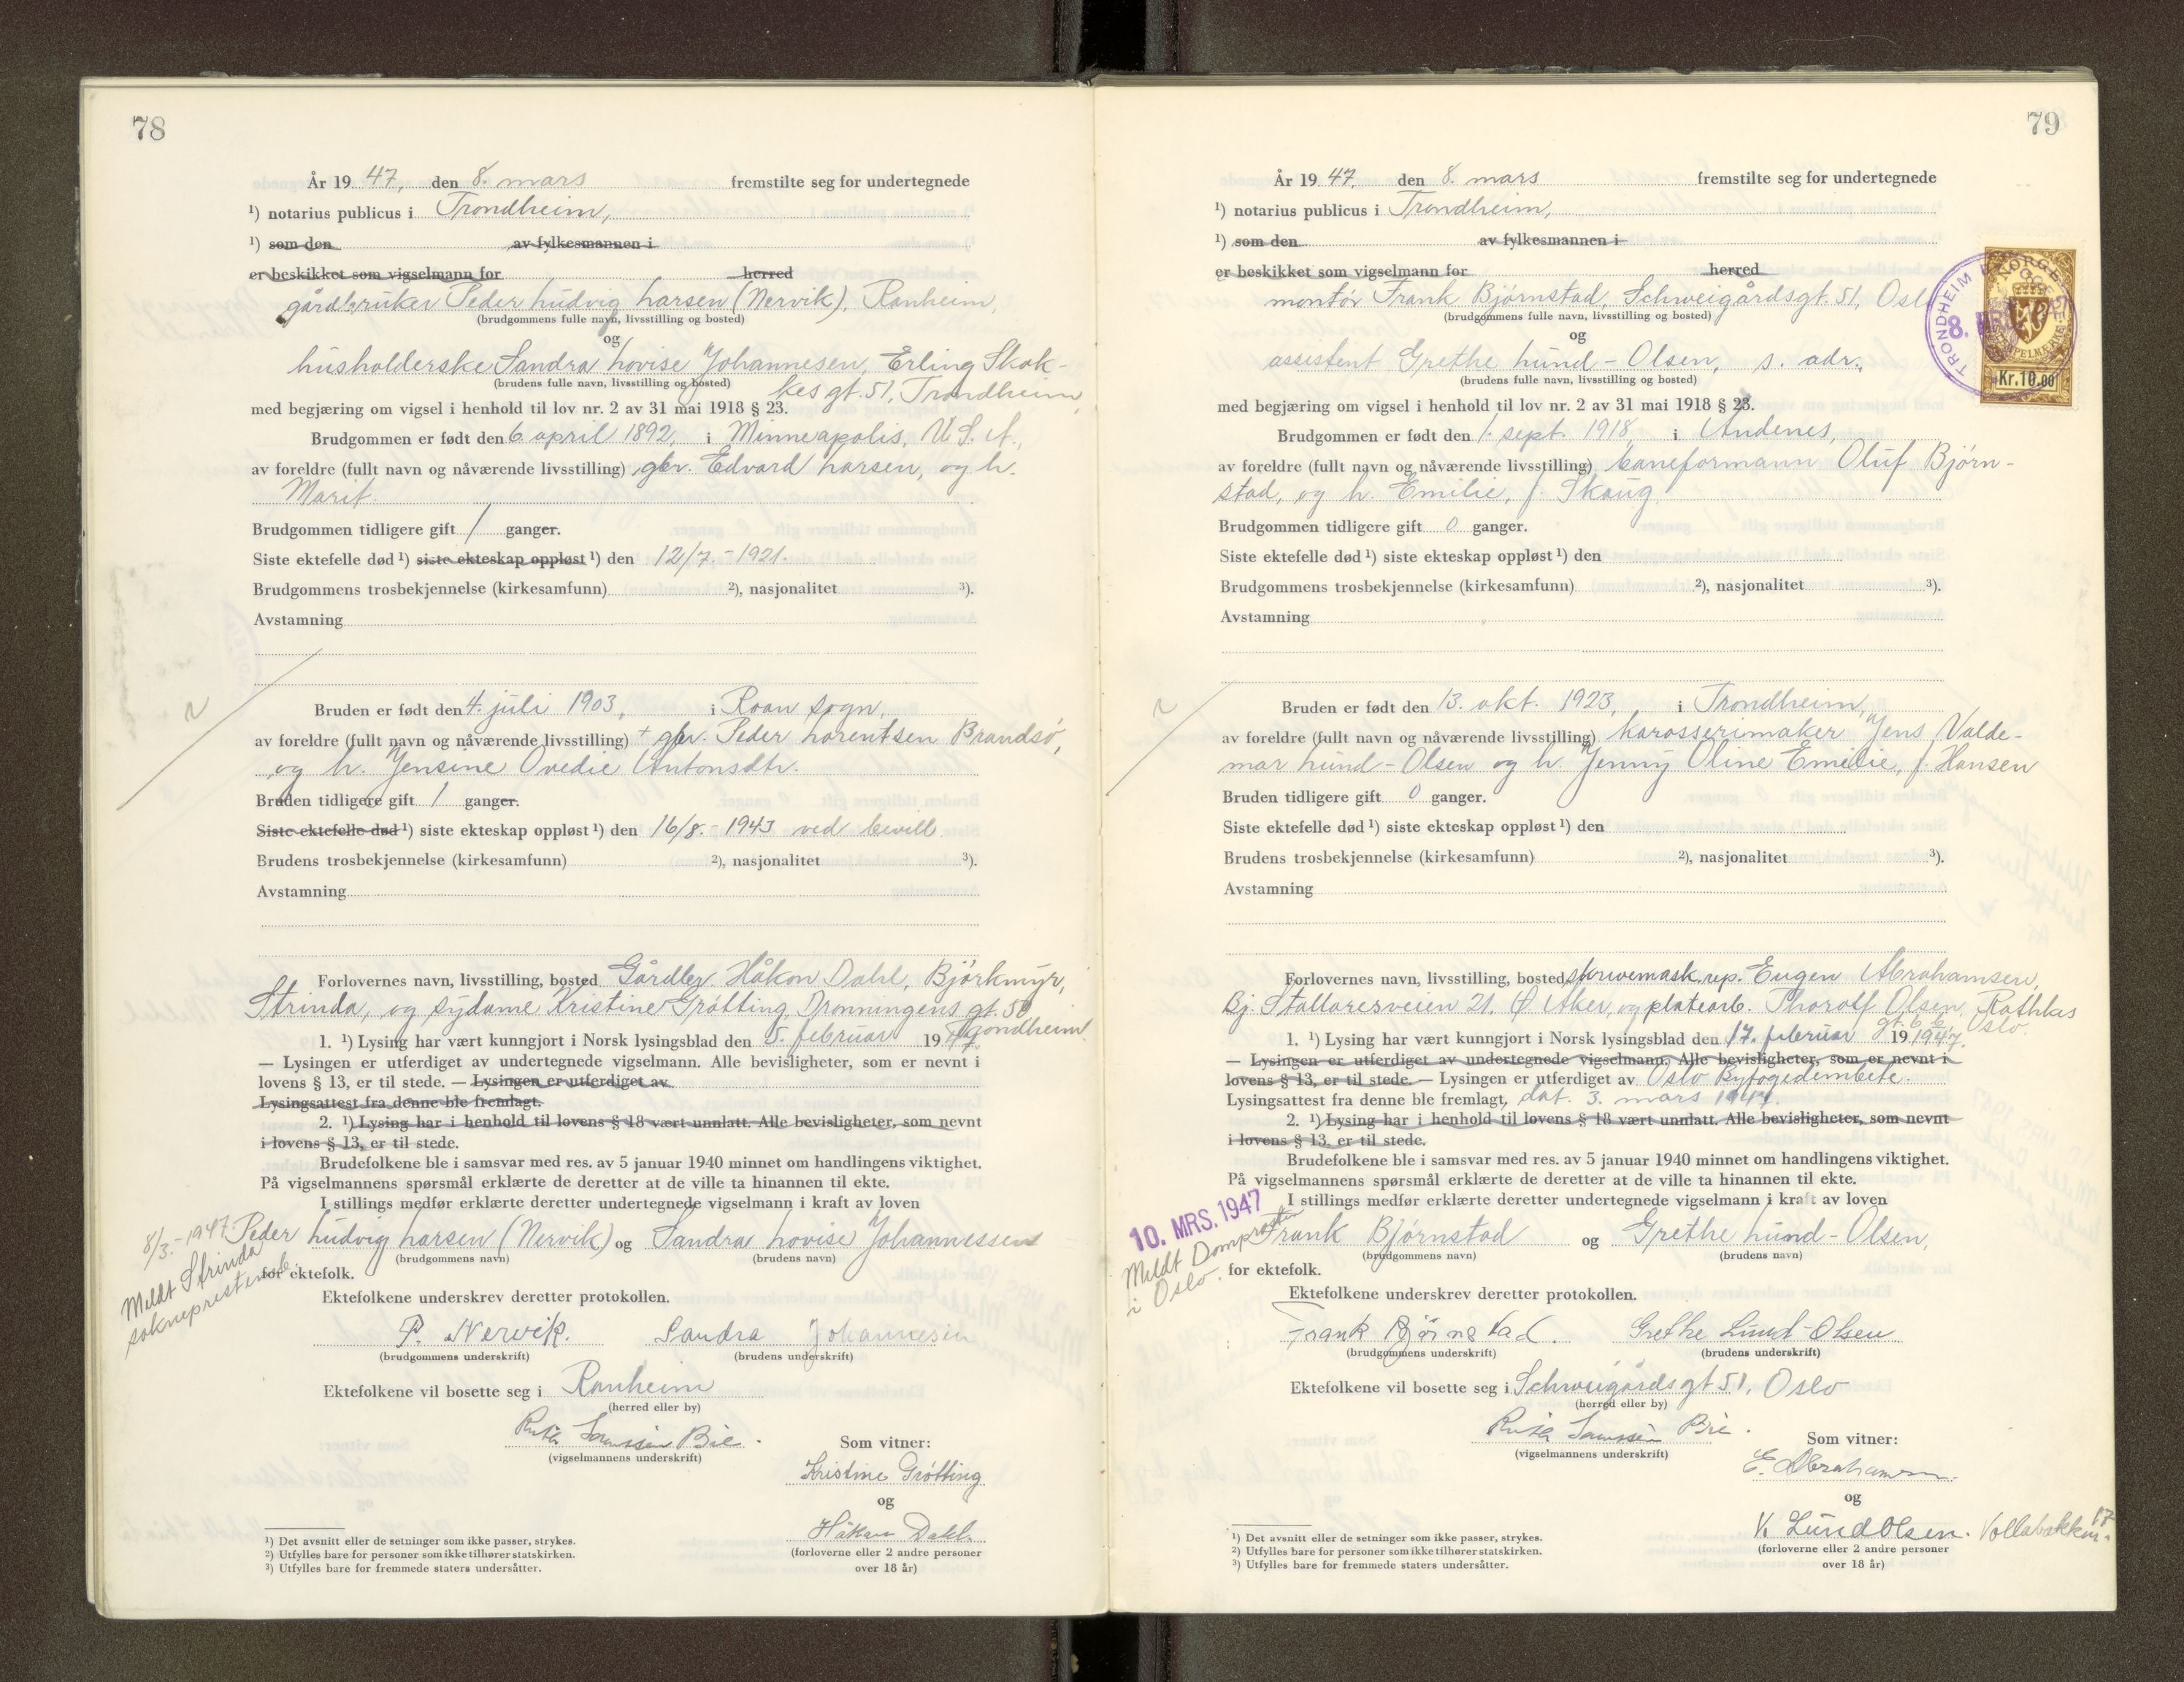 78
År 19 47, den 8. mars fremstilte seg for undertegnede
¹) notarius publicus i Trondheim,
¹) som den av fylkesmannen i
er beskikket som vigselmann for herred
gårdbruker Peder Ludvig Larsen (Nervik), Ranheim,
(brudgommens fulle navn, livsstilling og bosted)
og
husholderske Sandra Lovise Johannesen, Erling Skak-
(brudens fulle navn, livsstilling og bosted)
kes gt. 51, Trondheim,
med begjæring om vigsel i henhold til lov nr. 2 av 31 mai 1918 § 23.
Brudgommen er født den 6. april 1892, i Minneapolis, U.S.A.,
av foreldre (fullt navn og nåværende livsstilling) gbr. Edvard Larsen, og h.
Marit
Brudgommen tidligere gift 1 ganger.
Siste ektefelle død ¹) siste ekteskap oppløst ¹) den 12/7.-1921.
Brudgommens trosbekjennelse (kirkesamfunn) ²), nasjonalitet ³).
Avstamning
Bruden er født den 4. juli 1903, i Roan sogn,
av foreldre (fullt navn og nåværende livsstilling) + gbr. Peder Lorentsen Brandsø,
og h. Jensine Ovedie Antonsdtr.
Bruden tidligere gift 1 ganger.
Siste ektefelle død ¹) siste ekteskap oppløst ¹) den 16/8.-1943 ved bevill
Brudens trosbekjennelse (kirkesamfunn) ²), nasjonalitet ³).
Avstamning
Forlovernes navn, livsstilling, bosted Gårdbr. Håkon Dahl, Bjørkmyr,
Strinda, og sydame Kristine Grøtting, Dronningens gt. 50
Trondheim
1. ¹) Lysing har vært kunngjort i Norsk lysingsblad den 5. februar 19 47
— Lysingen er utferdiget av undertegnede vigselmann. Alle bevisligheter, som er nevnt i
lovens § 13, er til stede. — Lysingen er utferdiget av
Lysingsattest fra denne ble fremlagt.
2. ¹) Lysing har i henhold til lovens § 18 vært unnlatt. Alle bevisligheter, som nevnt
i lovens § 13, er til stede.
Brudefolkene ble i samsvar med res. av 5 januar 1940 minnet om handlingens viktighet.
På vigselmannens spørsmål erklærte de deretter at de ville ta hinannen til ekte.
I stillings medfør erklærte deretter undertegnede vigselmann i kraft av loven
Peder Ludvig Larsen (Nervik) og Sandra Lovise Johannessen
(brudgommens navn) (brudens navn)
8/3.-1947.
Meldt Strinda
sokneprestemb.
for ektefolk.
Ektefolkene underskrev deretter protokollen.
P. Nervik. Sandra Johannesen
(brudgommens underskrift) (brudens underskrift)
Ektefolkene vil bosette seg i Ranheim
(herred eller by)
Bie.
(vigselmannens underskrift)
Som vitner:
Kristine Grøtting
og
Håkon Dahl.
(forloverne eller 2 andre personer
over 18 år)
¹) Det avsnitt eller de setninger som ikke passer, strykes.
²) Utfylles bare for personer som ikke tilhører statskirken.
³) Utfylles bare for fremmede staters undersåtter.
79
År 19 47, den 8. mars fremstilte seg for undertegnede
¹) notarius publicus i Trondheim,
¹) som den av fylkesmannen i
er beskikket som vigselmann for herred
montør Frank Bjørnstad, Schweigårdsgt. 51, Osl
(brudgommens fulle navn, livsstilling og bosted)
TRONDHEIM
NORGE
STEMPELMERKE
Kr.10.00
og
assistent Grethe Lund-Olsen, s. adr.,
(brudens fulle navn, livsstilling og bosted)
med begjæring om vigsel i henhold til lov nr. 2 av 31 mai 1918 § 23.
Brudgommen er født den 1. sept. 1918, i Andenes,
av foreldre (fullt navn og nåværende livsstilling) baneformann Oluf Bjørn-
stad, og h. Emilie, f. Skaug.
Brudgommen tidligere gift 0 ganger.
Siste ektefelle død ¹) siste ekteskap oppløst ¹) den
Brudgommens trosbekjennelse (kirkesamfunn) ²), nasjonalitet ³).
Avstamning
Bruden er født den 13. okt. 1923, i Trondheim,
av foreldre (fullt navn og nåværende livsstilling) karosserimaker Jens Valde-
mar Lund-Olsen og h. Jenny Oline Emelie, f. Hansen
Bruden tidligere gift 0 ganger.
Siste ektefelle død ¹) siste ekteskap oppløst ¹) den
Brudens trosbekjennelse (kirkesamfunn) ²), nasjonalitet ³).
Avstamning
Forlovernes navn, livsstilling, bosted skrivemask.rep. Eugen Abrahamsen,
Bj. Stallaresveien 21. Ø. Aker, og platearb. Thorolf Olsen, Rathkes
gt. 6 Oslo.
1. ¹) Lysing har vært kunngjort i Norsk lysingsblad den 17. februar 19 1947.
— Lysingen er utferdiget av undertegnede vigselmann. Alle bevisligheter, som er nevnt i
lovens § 13, er til stede. — Lysingen er utferdiget av Oslo Byfogedembete.
Lysingsattest fra denne ble fremlagt, dat. 3. mars 1947.
2. ¹) Lysing har i henhold til lovens § 18 vært unnlatt. Alle bevisligheter, som nevnt
i lovens § 13, er til stede.
Brudefolkene ble i samsvar med res. av 5 januar 1940 minnet om handlingens viktighet.
På vigselmannens spørsmål erklærte de deretter at de ville ta hinannen til ekte.
I stillings medfør erklærte deretter undertegnede vigselmann i kraft av loven
10. MRS. 1947
Meldt Domprosten
i Oslo.
Frank Bjørnstad og Grethe Lund-Olsen,
(brudgommens navn) (brudens navn)
for ektefolk.
Ektefolkene underskrev deretter protokollen.
Frank Bjørnstad. Grethe Lund-Olsen
(brudgommens underskrift) (brudens underskrift)
Ektefolkene vil bosette seg i Schweigårdsgt 51, Oslo
(herred eller by)
Bie.
(vigselmannens underskrift)
Som vitner:
E. Abrahamsen.
og
V. Lund Olsen. Vollabakken 17
(forloverne eller 2 andre personer
over 18 år)
¹) Det avsnitt eller de setninger som ikke passer, strykes.
²) Utfylles bare for personer som ikke tilhører statskirken.
³) Utfylles bare for fremmede staters undersåtter.